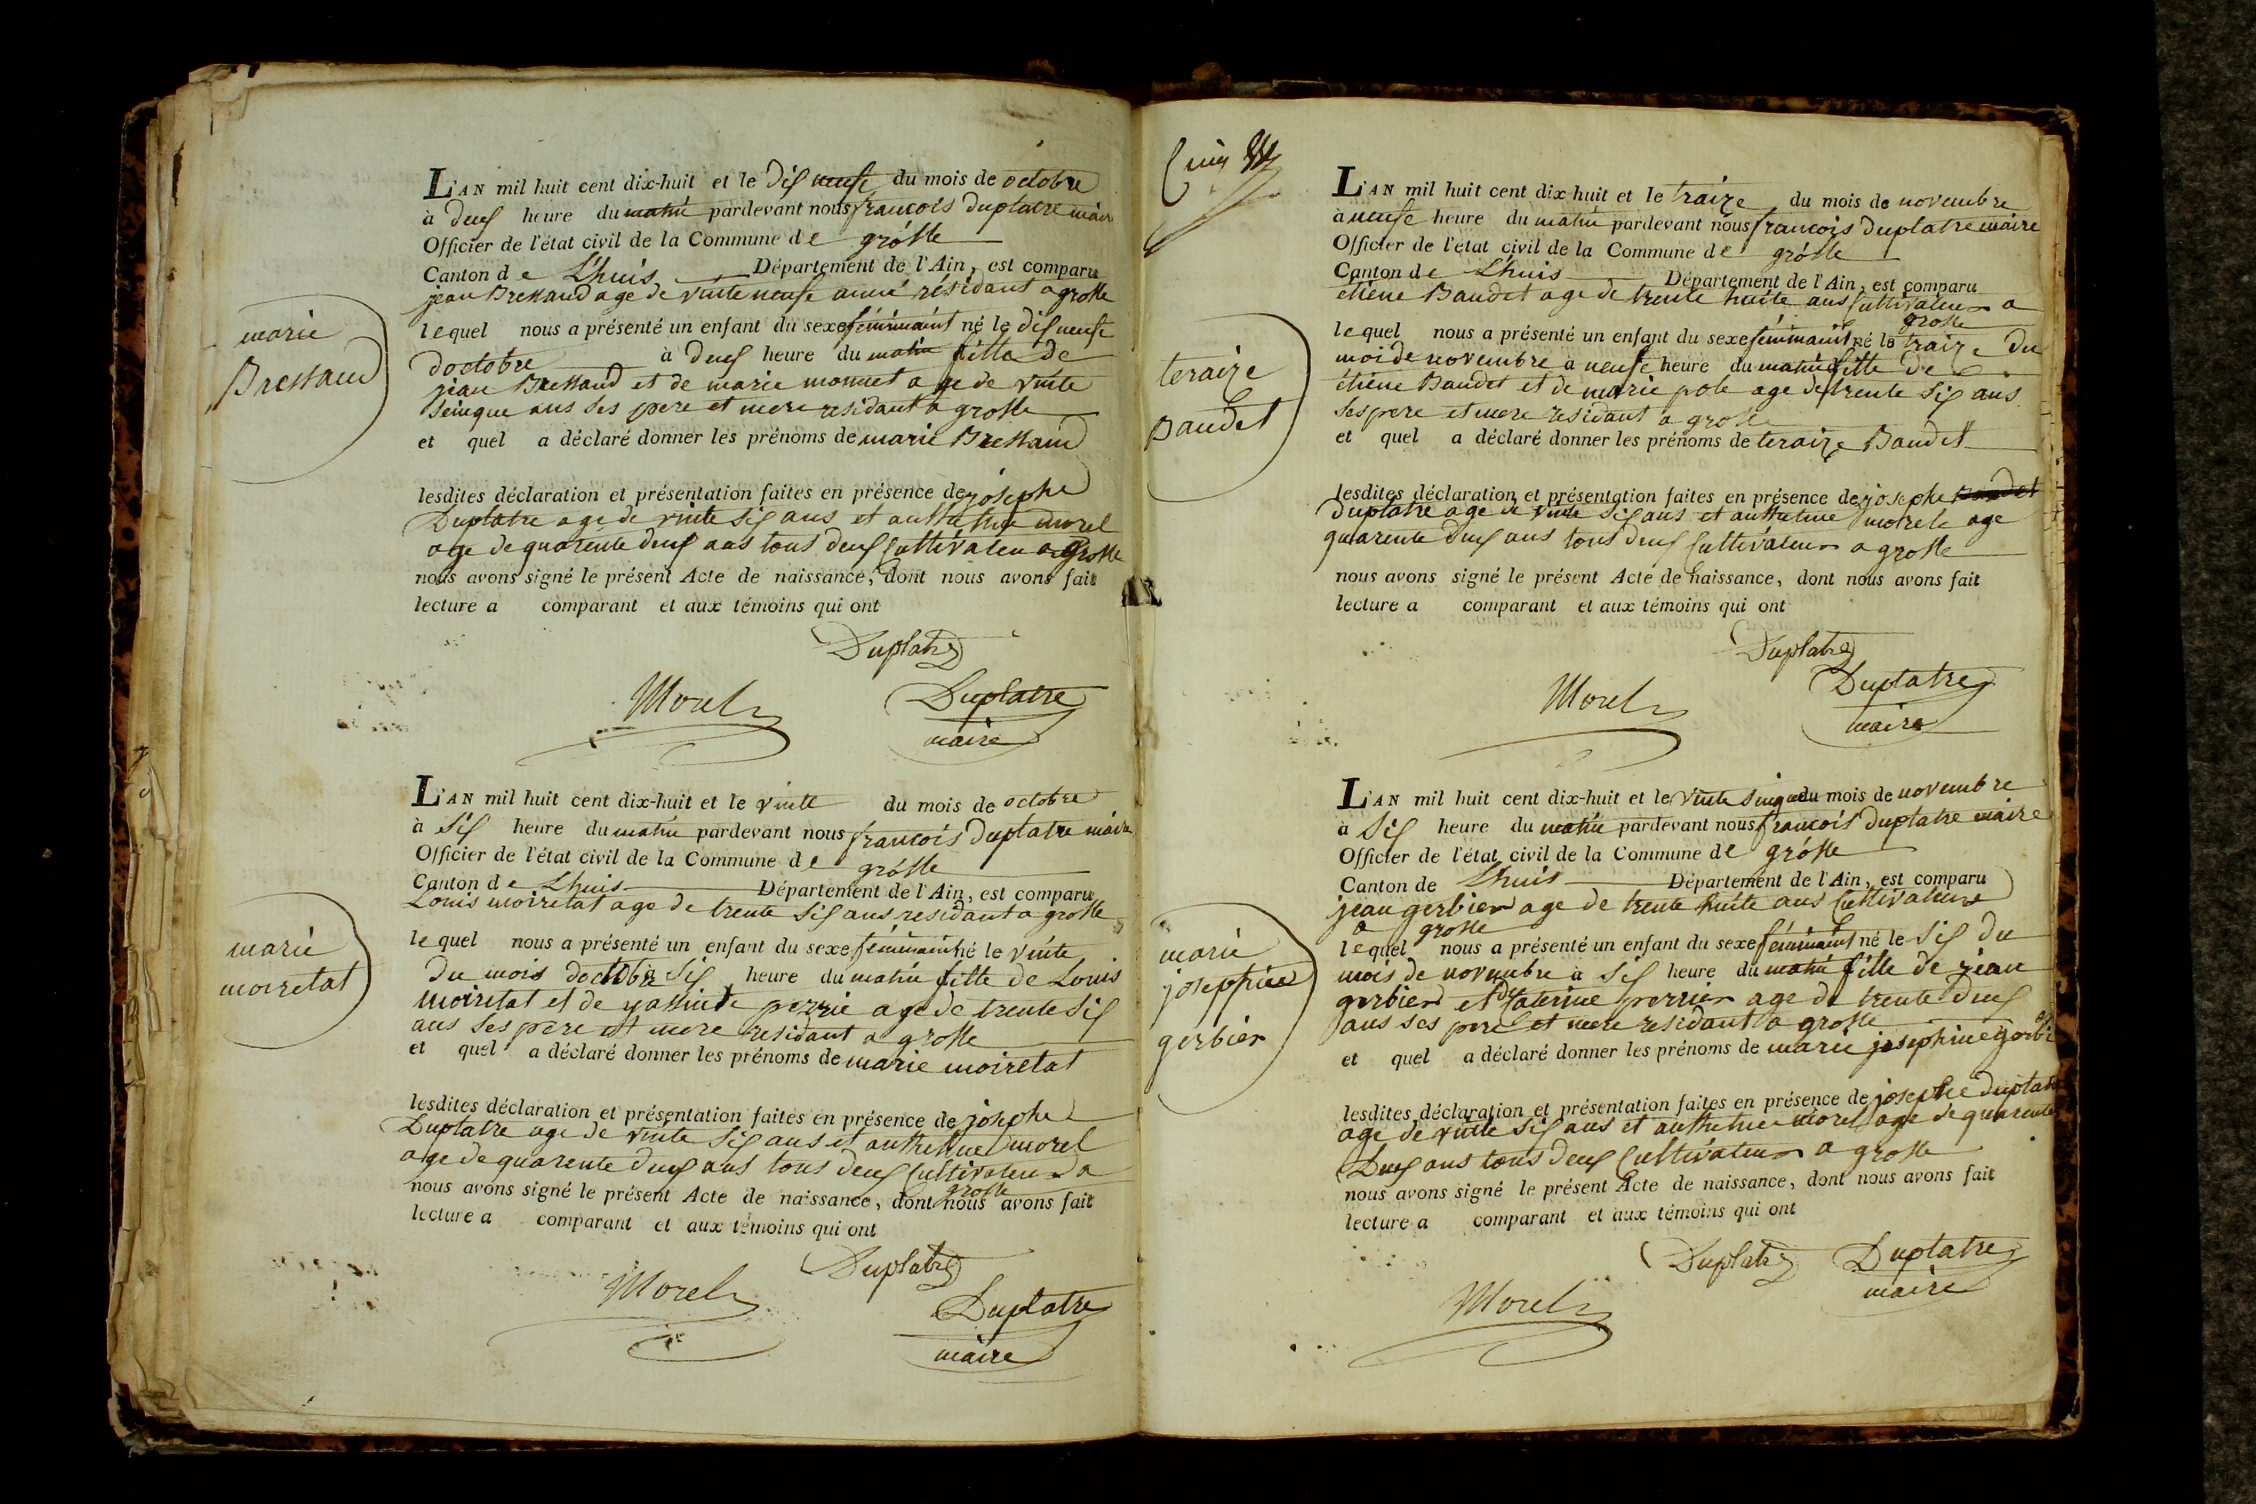 marie
Bressand
L'AN mil huit cent dix-huit et le dis neufe du mois de octobre
à deus heure du matin pardevant nous francois duplatre maire
Officier de l'état civil de la Commune de grósle
Canton de L'huis Département de l'Ain, est comparu
jean Bressand age de vinte neufe année résidant a grosle
lequel nous a présenté un enfant du sexe féminaint né le dis neufe
doctobre à deus heure du matin fille de
jean Bressand et de marie monnet age de vinte
seinque ans ses pere et mere residant a grosle
et quel a déclaré donner les prénoms de marie Bressand
lesdites déclaration et présentation faites en présence de josephe
Duplatre age de vinte sis ans et anthelme morel
age de quarente deus ans tous deus cultivateur a grosle
nous avons signé le présent Acte de naissance, dont nous avons fait
lecture a comparant et aux témoins qui ont
Duplatre
Morel Duplatre
maire
marie
moiretat
L'AN mil huit cent dix-huit et le vinte du mois de octobre
à sis heure du matin pardevant nous francois duplatre maire
Officier de l'état civil de la Commune de grósle
Canton de Lhuis Département de l'Ain, est comparu
Louis moiretat age de trente sis ans residant a grosle
lequel nous a présenté un enfant du sexe féminaint né le vinte
du mois doctobre sis heure du matin fille de Louis
moiretat et de perrie age de trente sis
ans ses pere et mere residant a grosle
et quel a déclaré donner les prénoms de marie moiretat
lesdites déclaration et présentation faites en présence de josephe
Duplatre age de vinte sis ans et anthelme morel
age de quarente deus ans tous deus cultivateur a
grosle
nous avons signé le présent Acte de naissance, dont nous avons fait
lecture a comparant et aux témoins qui ont
Duplatre
Morel
Duplatre
maire
teraize
Baudet
L'AN mil huit cent dix-huit et le traize du mois de novembre
à neufe heure du matin pardevant nous francois duplatre maire
Officier de l'état civil de la Commune de grósle
Canton de Lhuis Département de l'Ain, est comparu
étiene Baudet age de trente huite ans cultivateur a
grosle
lequel nous a présenté un enfant du sexe féminaint né le traize du
moi de novembre a neufe heure du matin fille de
étiene Baudet et de marie pole age de trente sis ans
ses pere et mere residant a grosle
et quel a déclaré donner les prénoms de teraize Baudet
lesdites déclaration et présentation faites en présence de josephe Baudet
Duplatre age de vinte sis ans et anthelme morele age
quarente deus ans tous deus cultivateur a grosle
nous avons signé le présent Acte de naissance, dont nous avons fait
lecture a comparant et aux témoins qui ont
Duplatre
Morel Duplatre
maire
marie
josephine
gerbier
L'AN mil huit cent dix-huit et le vinte seinque du mois de novembre
à sis heure du matin pardevant nous francois duplatre maire
Officier de l'état civil de la Commune de grósle
Canton de Lhuis Département de l'Ain, est comparu
jean gerbier age de trente huite ans cultivateur
a grosle
lequel nous a présenté un enfant du sexe féminaint né le sis du
mois de novembre à sis heure du matin fille de jean
gerbier et de caterine perrier age de trente deus
ans ses pere et mere residant a grosle
et quel a déclaré donner les prénoms de marie josephine gerbier
lesdites déclaration et présentation faites en présence de josephe duplatre
age de vinte sis ans et anthelme morel age de quarente
Deus ans tous deus cultivateur a grosle
nous avons signé le présent Acte de naissance, dont nous avons fait
lecture a comparant et aux témoins qui ont
Duplatre Duplatre
maire
Morel